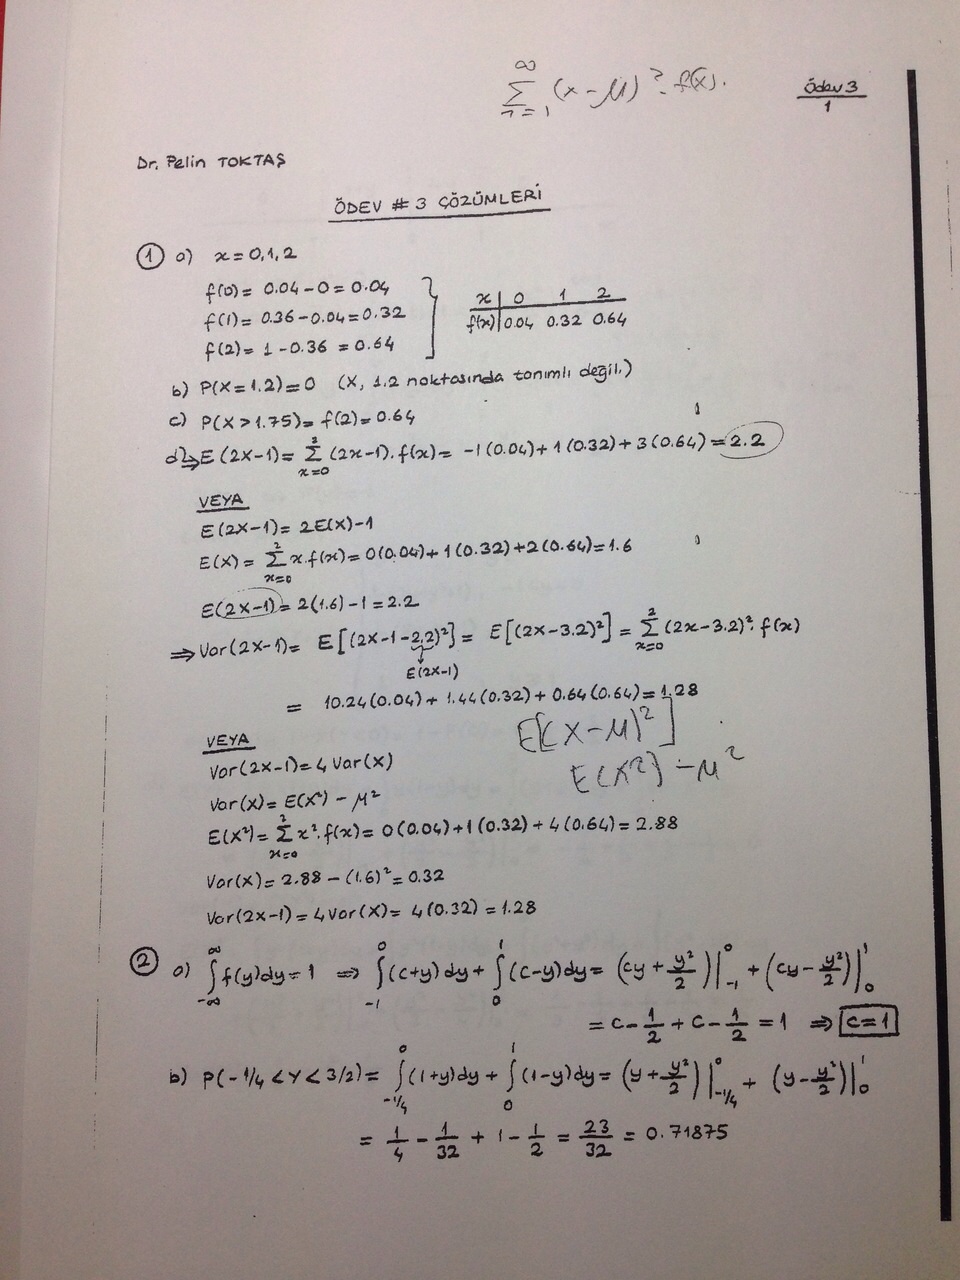 ∞
Σ (x-μ)². f(x).
n=1
Ödev 3
1
Dr. Pelin TOKTAŞ
ÖDEV # 3 ÇÖZÜMLERİ
① a) x=0,1,2
f(0)= 0.04-0=0.04
f(1)= 0.36-0.04=0.32
f(2)= 1-0.36 = 0.64
x | 0 1 2
f(x) | 0.04 0.32 0.64
b) P(X=1.2)=0 (X, 1.2 noktasında tanımlı değil.)
c) P(X>1.75)= f(2)=0.64
d) ⇒ E(2X-1)= Σ_{x=0}^{2} (2x-1). f(x)= -1(0.04)+1(0.32)+3(0.64)=2.2
VEYA
E(2X-1)= 2E(X)-1
E(X)= Σ_{x=0}^{2} x.f(x)=0(0.04)+1(0.32)+2(0.64)=1.6
E(2X-1)=2(1.6)-1=2.2
⇒ Var(2X-1)= E[(2X-1-2.2)²]= E[(2X-3.2)²]= Σ_{x=0}^{2} (2x-3.2)². f(x)
E(2X-1)
= 10.24(0.04)+1.44(0.32)+0.64(0.64)=1.28
E[(X-μ)²]
VEYA
E(X²)-μ²
Var(2X-1)=4Var(X)
Var(X)=E(X²)-μ²
E(X²)= Σ_{x=0}^{2} x². f(x)=0(0.04)+1(0.32)+4(0.64)=2.88
Var(X)=2.88-(1.6)²=0.32
Var(2X-1)=4Var(X)=4(0.32)=1.28
② a) ∫_{-∞}^{∞} f(y)dy=1 ⇒ ∫_{-1}^{0} (c+y)dy+ ∫_{0}^{1} (c-y)dy= (cy+y²/2)|_{-1}^{0} + (cy-y²/2)|_{0}^{1}
= c-1/2+c-1/2=1 ⇒ c=1
b) P(-1/4<Y<3/2)= ∫_{-1/4}^{0} (1+y)dy+ ∫_{0}^{1} (1-y)dy= (y+y²/2)|_{-1/4}^{0} + (y-y²/2)|_{0}^{1}
= 1/4 - 1/32 + 1 - 1/2 = 23/32 = 0.71875